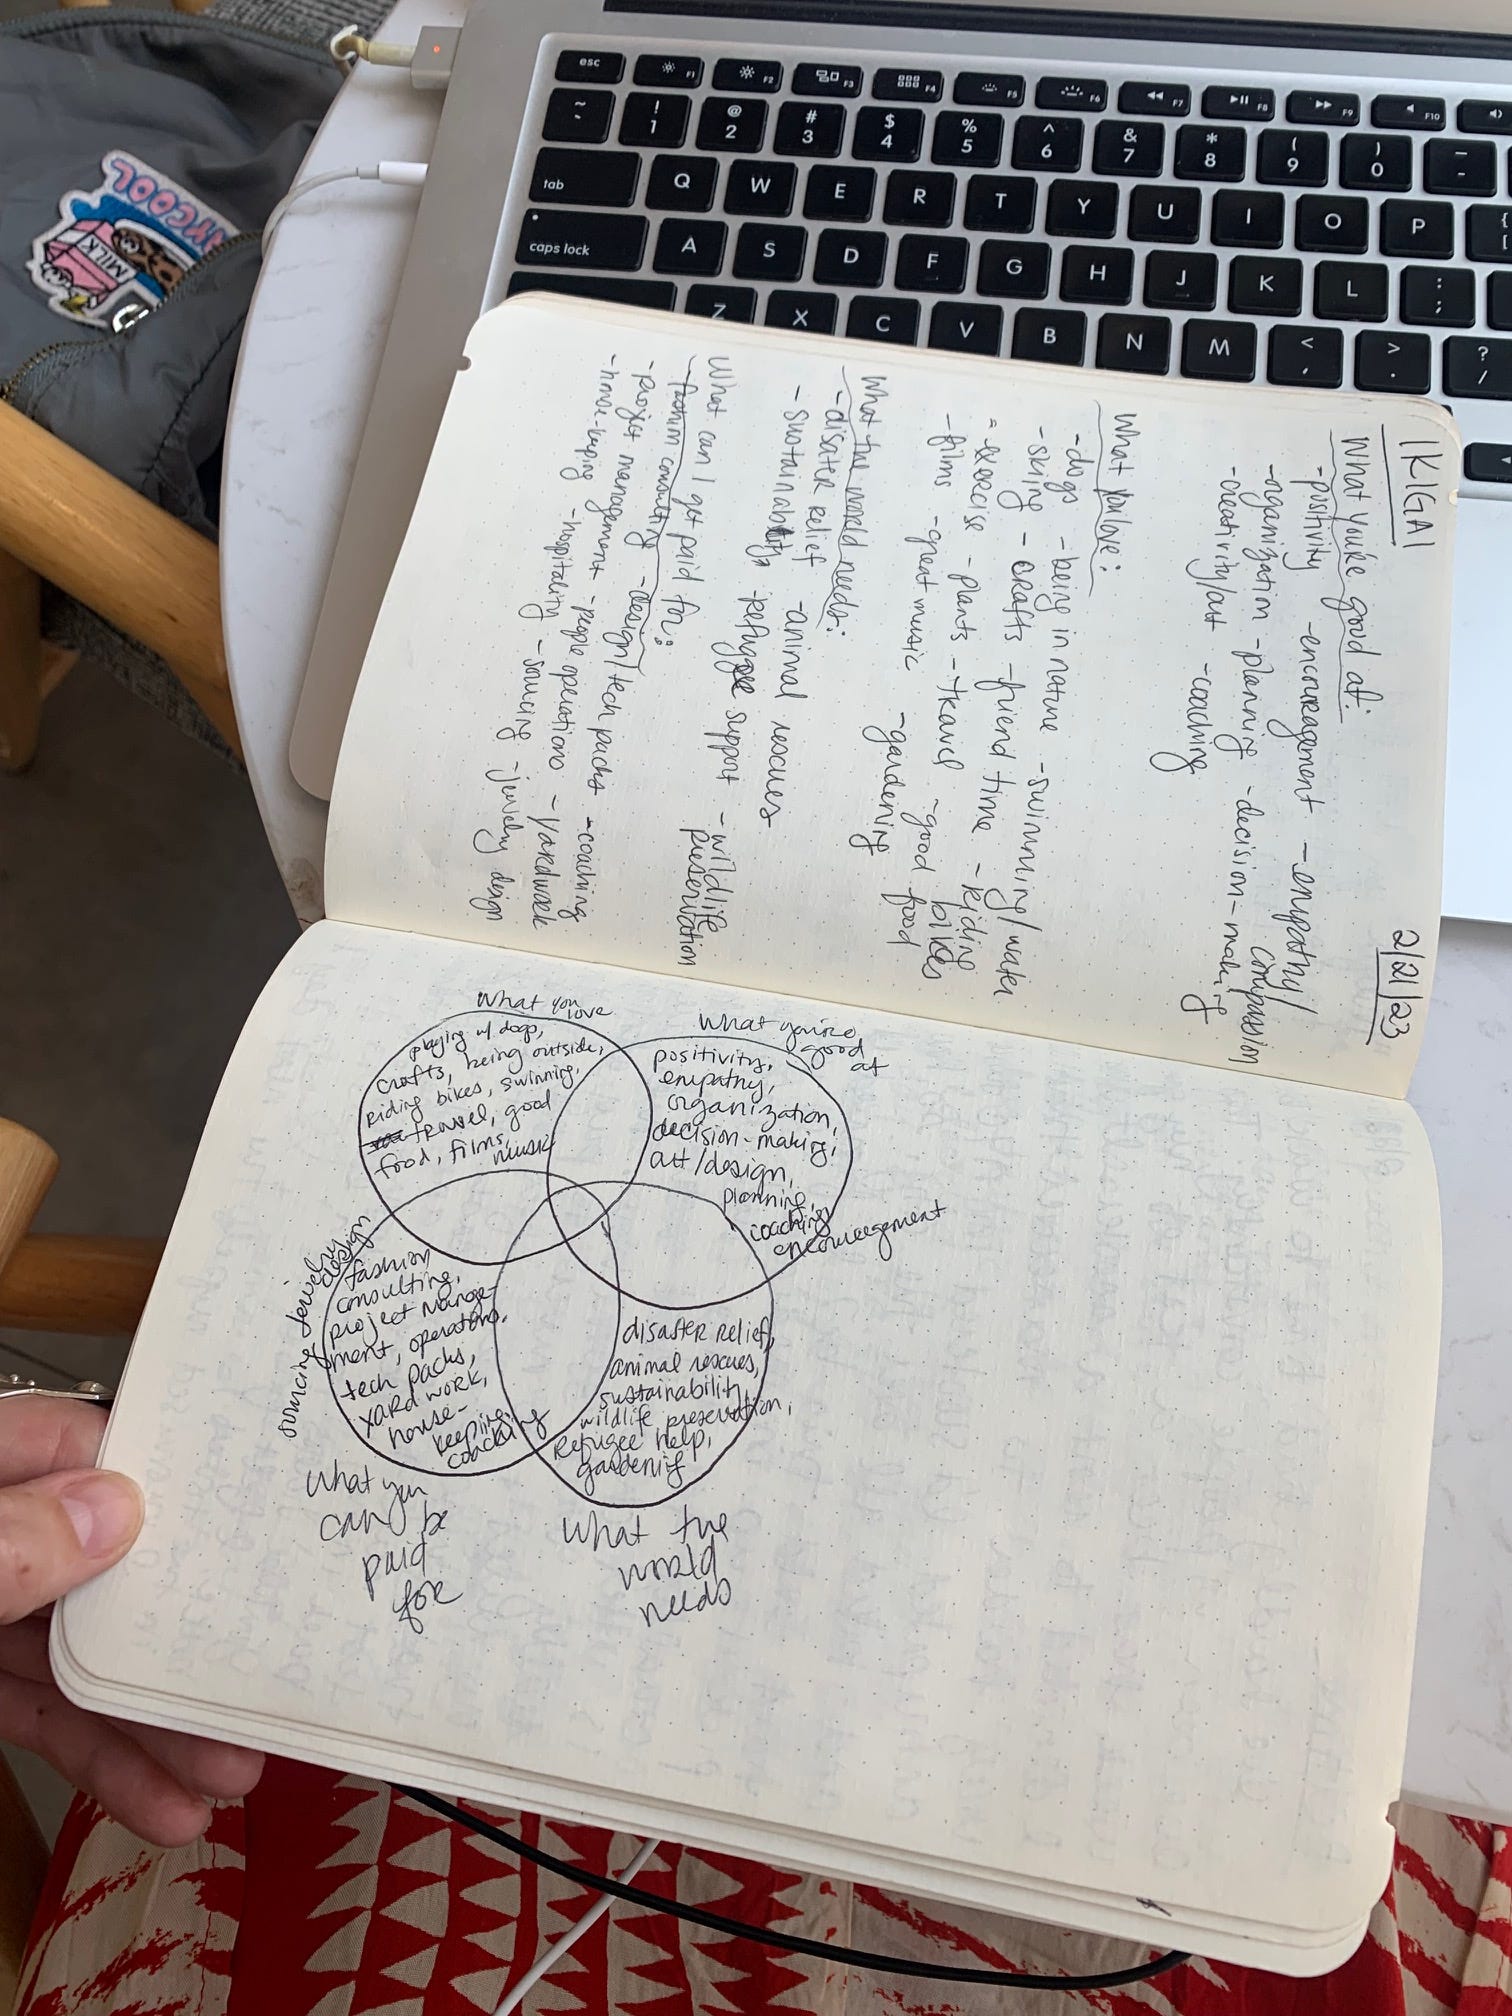 IKIGAI
2/21/23
What you're good at:
-positivity -encouragement -empathy/
compassion
-organization -planning -decision-making
-creativity/art -coaching
What you love:
-dogs -being in nature -swimming/water
-skiing -crafts -friend time -riding
bikes
-exercise -plants -travel -good food
-films -great music -gardening
What the world needs:
-disater relief -animal rescues
-sustainability -refugee support -wildlife
preservation
What can I get paid for:
-fashion consulting -design/tech packs -coaching
-project management -people operations -yardwork
-house-keeping -hospitality -sourcing -jewelry design
What you
love
playing w/ dogs,
crafts, being outside,
riding bikes, swimming,
travel, good
food, films,
music
What you're
good
at
positivity,
empathy,
organization,
decision-making,
art/design,
planning,
coaching
encouragement
sourcing jewelry
design
fashion
consulting,
project manage-
ment, operations,
tech packs,
yard work,
house-
keeping,
coaching
What you
can be
paid
for
disaster relief,
animal rescues,
sustainability,
wildlife preservation,
Refugee help,
gardening
What the
world
needs
esc F1 F2 F3 F4 F5 F6 F7 F8 F9 F10
~ ! @ # $ % ^ & * ( ) _
` 1 2 3 4 5 6 7 8 9 0 -
tab Q W E R T Y U I O P { [
caps lock A S D F G H J K L : ;
Z X C V B N M < , > . ? /
MILK